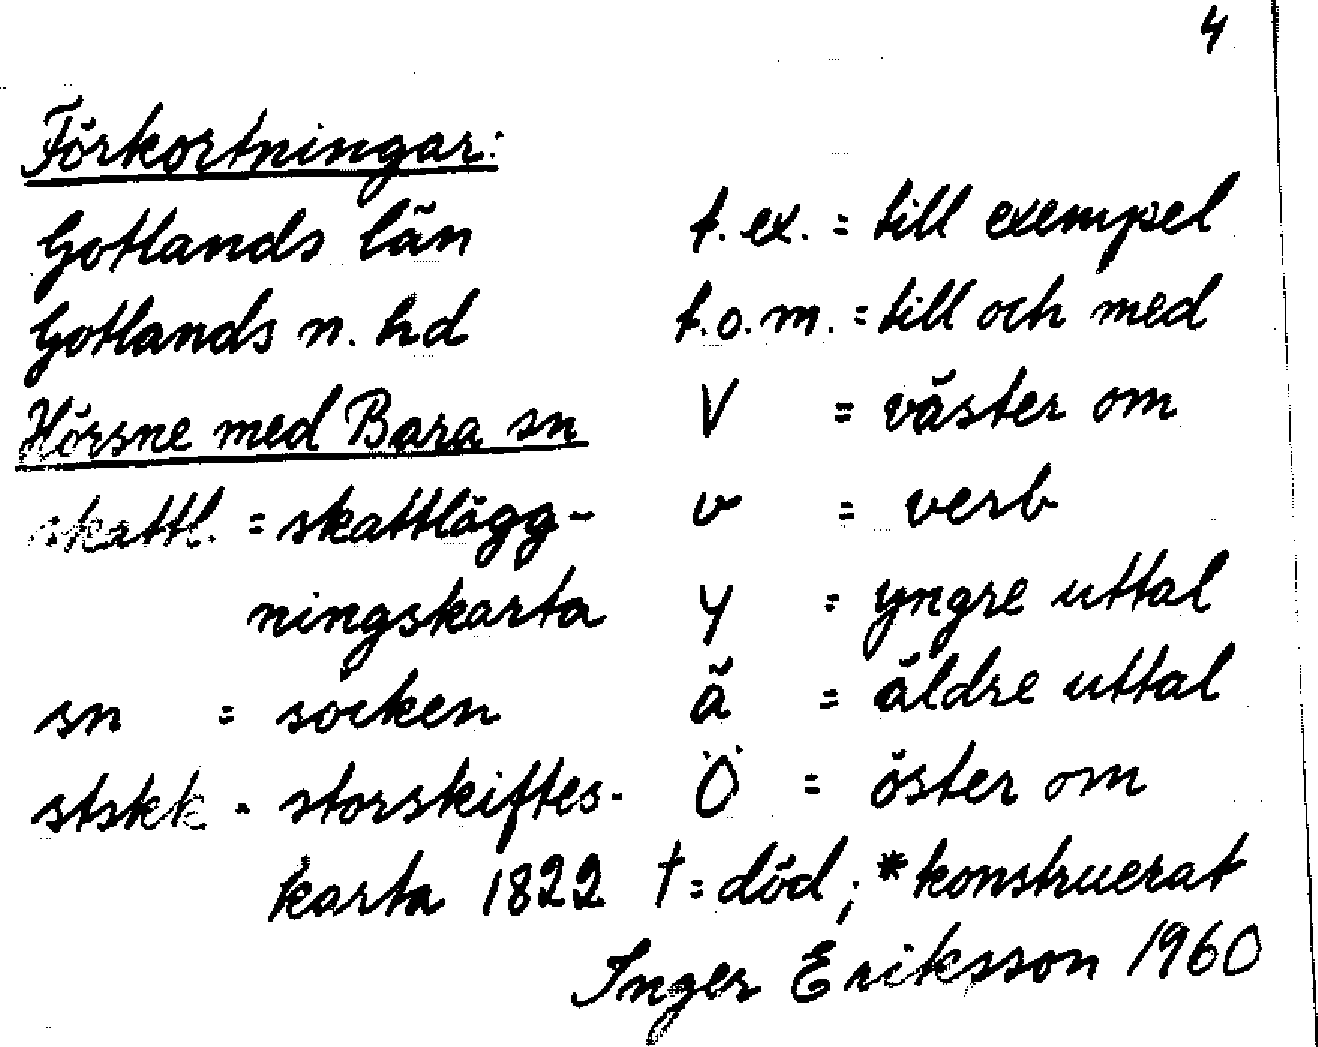 4
Förkortningar:
Gotlands län
Gotlands n. hd
Hörsne med Bara sn
skattl. = skattlägg-
ningskarta
sn = socken
stskk = storskiftes-
karta 1822
t. ex. = till exempel
t.o.m. = till och med
V = väster om
v = verb
y = yngre uttal
ä = äldre uttal
Ö = öster om
† = död; * konstruerat
Inger Eriksson 1960